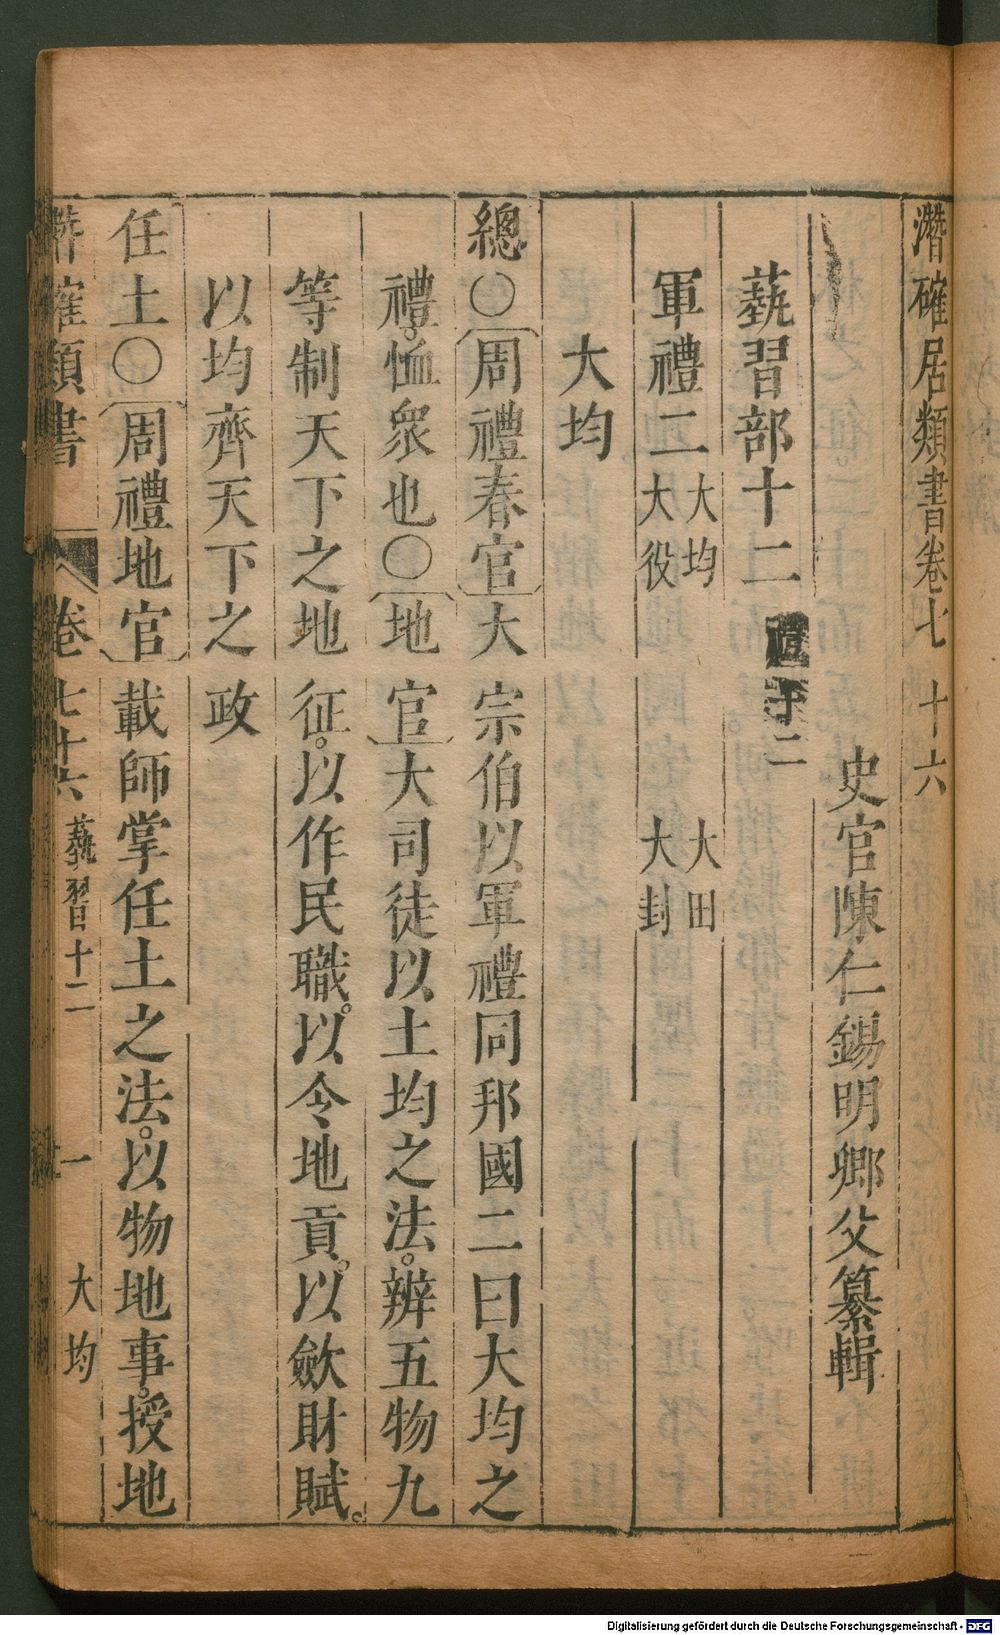 潛確居類書卷七十六
史官陳仁錫明卿父纂輯
藝習部十二
軍禮二大均 大役 大田 大封
大均
總〇周禮春官大宗伯以軍禮同邦國二曰大均之
禮。恤眾也〇地官大司徒以土均之法。辨五物九
等制天下之地征。以作民職。以令地貢。以斂財賦。
以均齊天下之政
任土〇周禮地官載師掌任土之法。以物地事。授地
潛確類書 卷七十六 藝習十二 一 大均
Digitalisierung gefördert durch die Deutsche Forschungsgemeinschaft - DFG